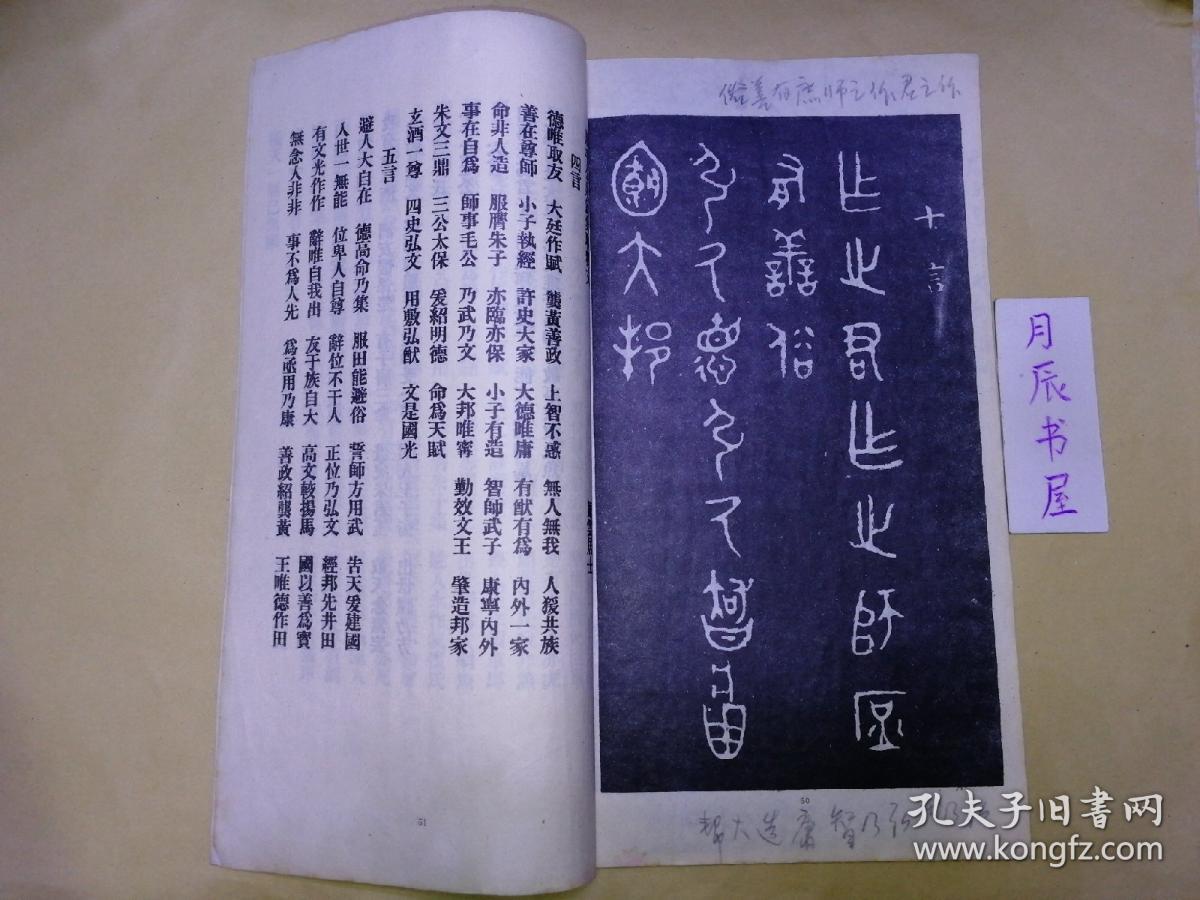 作之君作之師庶有善俗
十言
作之君作之師
有善俗
大邦
智庸造大邦
50
四言
德唯取友 大廷作賦 龔黃善政 上智不惑 無人無我 人猨共族
善在尊師 小子執經 許史大家 大德唯庸 有猷有爲 內外一家
命非人造 服膺朱子 亦臨亦保 小子有造 智師武子 康寧內外
事在自爲 師事毛公 乃武乃文 大邦唯寧 勤效文王 肇造邦家
朱文三鼎 三公太保 爰紹明德 命爲天賦
玄酒一尊 四史弘文 用敷弘猷 文是國光
五言
避人大自在 德高命乃集 服田能避俗 誓師方用武 告天爰建國
人世一無能 位卑人自尊 辭位不干人 正位乃弘文 經邦先井田
有文光作作 辭唯自我出 友于族自大 高文較揚馬 國以善爲寶
無念人非非 事不爲人先 爲丞用乃康 善政紹龔黃 王唯德作田
51
月辰书屋
孔夫子旧书网
www.kongfz.com